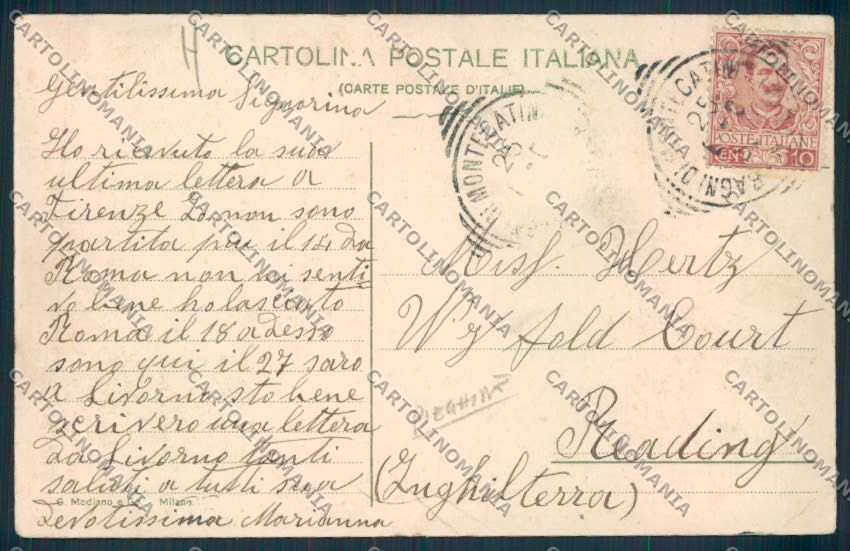 CARTOLINA POSTALE ITALIANA
(CARTE POSTALE D'ITALIE)
Gentilissima Signorina
Ho ricevuto la sua
ultima lettera a
Firenze Io non sono
partita piu il 14 da
Roma non mi senti
vo bene ho lasciato
Roma il 18 adesso
sono qui il 27 saro
a Livorno sto bene
scrivero una lettera
da Livorno tanti
saluti a tutti sua
devotissima Marianna
G. Modiano e Co. Milano
POSTE ITALIANE
CENT. 10
MONTECATINI
BAGNI DI MONTECATINI
Miss. Hertz
Wyfold Court
Reading
(Inghilterra)
PIEGHINA
CARTOLINOMANIA